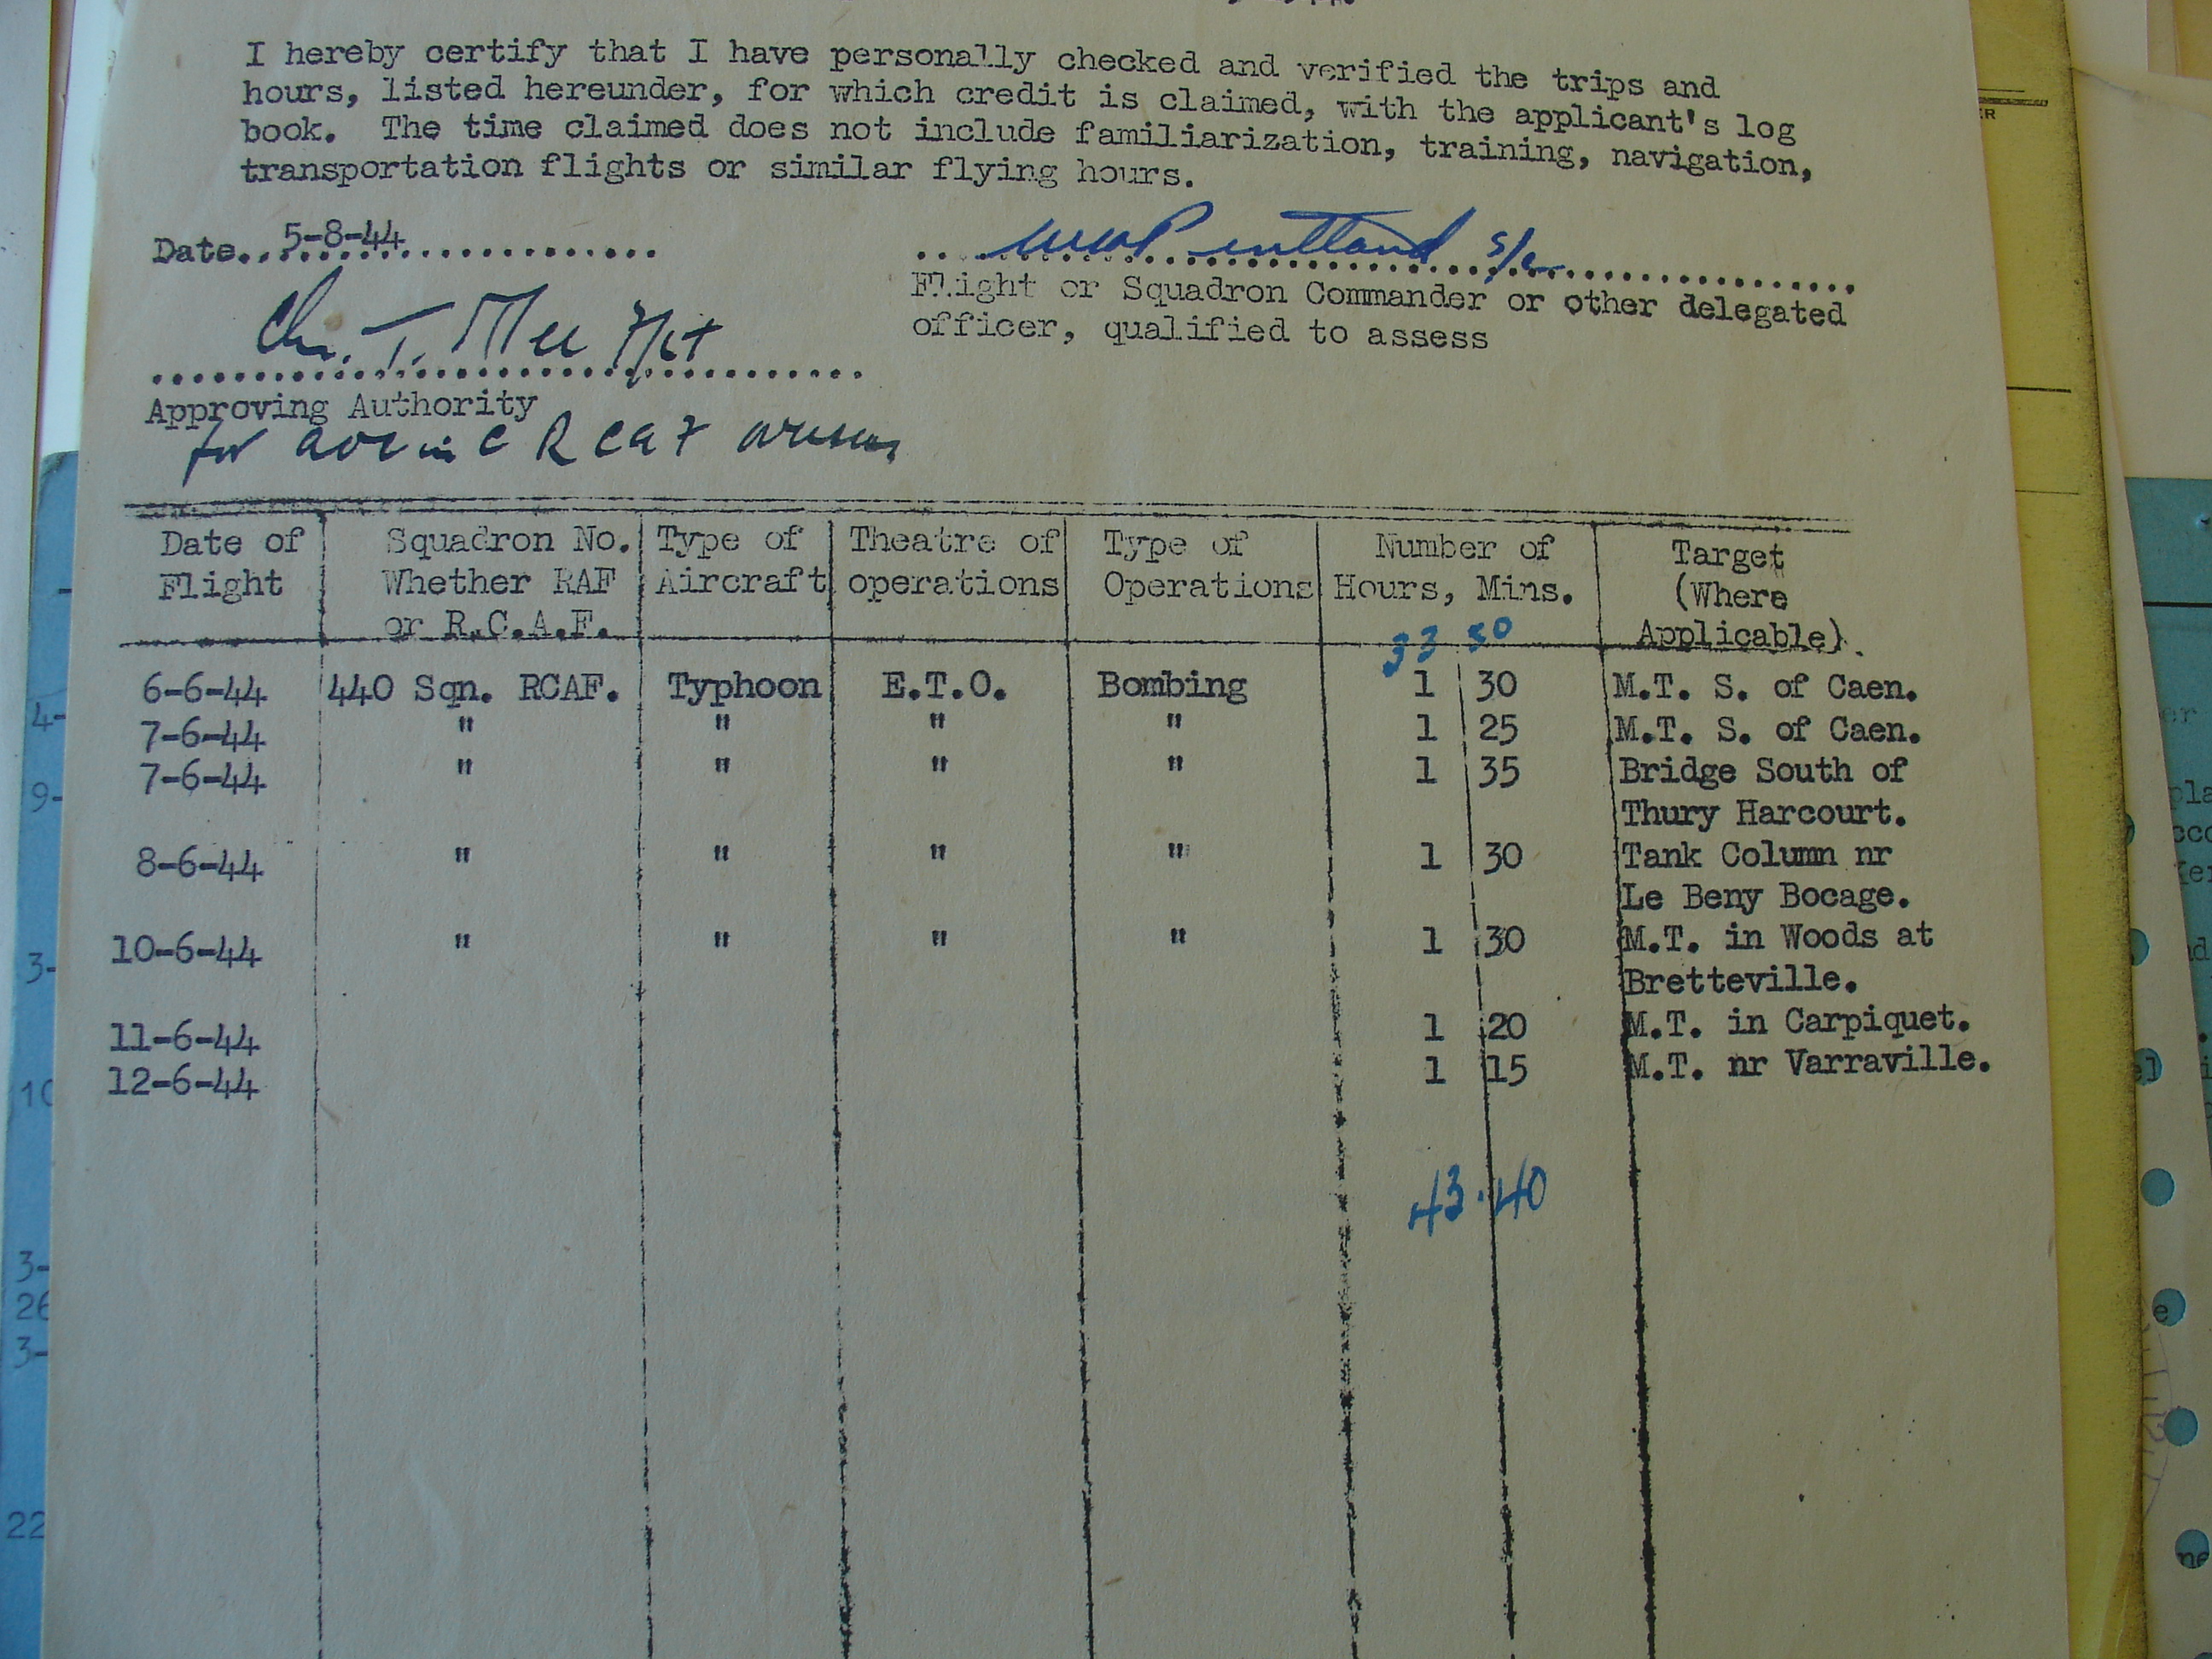 I hereby certify that I have personally checked and verified the trips and
hours, listed hereunder, for which credit is claimed, with the applicant's log
book. The time claimed does not include familiarization, training, navigation,
transportation flights or similar flying hours.
Date..5-8-44....................
Flight or Squadron Commander or other delegated
officer, qualified to assess
Approving Authority
for
Date of Flight Squadron No. Whether RAF or R.C.A.F. Type of Aircraft Theatre of operations Type of Operations Number of Hours, Mins. Target (Where Applicable)
33 50
6-6-44 440 Sqn. RCAF. Typhoon E.T.O. Bombing 1 30 M.T. S. of Caen.
7-6-44 " " " " 1 25 M.T. S. of Caen.
7-6-44 " " " " 1 35 Bridge South of
Thury Harcourt.
8-6-44 " " " " 1 30 Tank Column nr
Le Beny Bocage.
10-6-44 " " " " 1 30 M.T. in Woods at
Bretteville.
11-6-44 1 20 M.T. in Carpiquet.
12-6-44 1 15 M.T. nr Varraville.
43.40